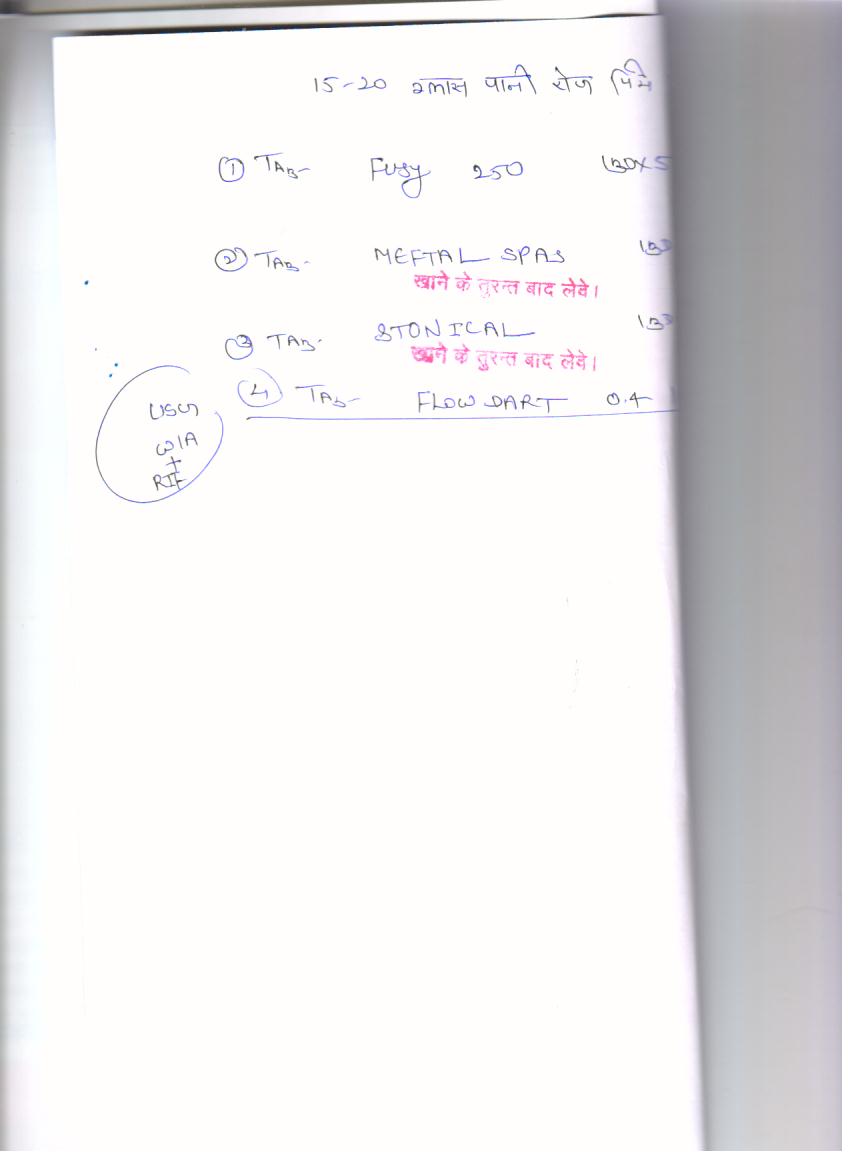 15-20 ग्लास पानी रोज पिये
① TAB- Fusy 250
② TAB- MEFTAL SPAS
खाने के तुरन्त बाद लेवे।
③ TAB- STONICAL
खाने के तुरन्त बाद लेवे।
④ TAB- FLOWDART 0.4
USG
W/A
+
RIF